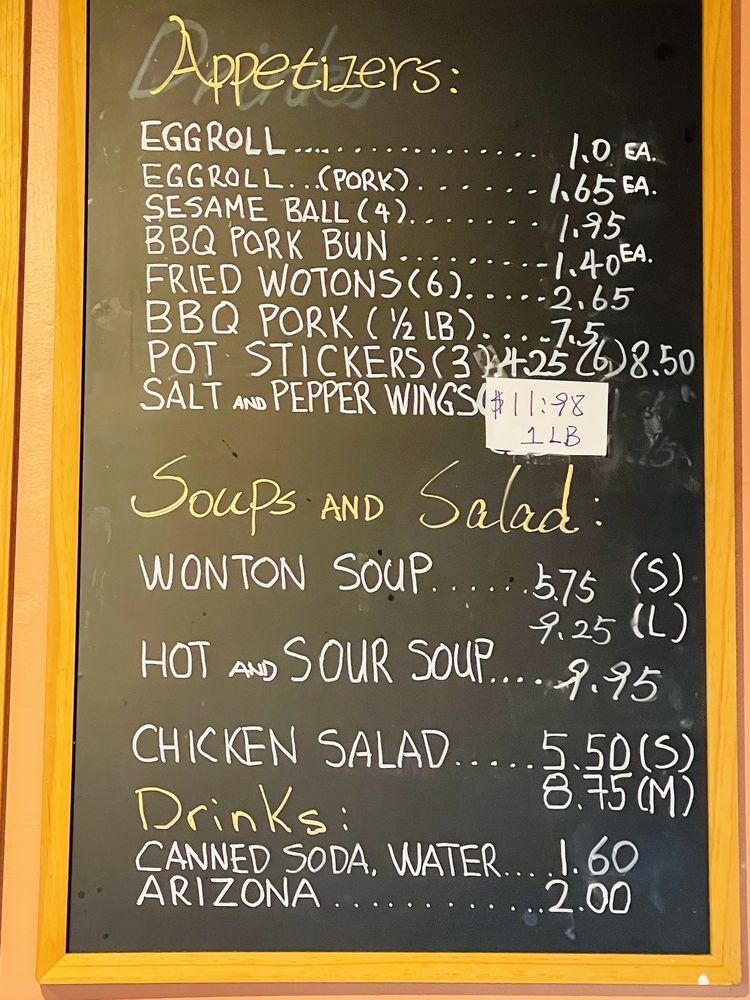 Appetizers:
EGGROLL.................. 1.0 EA.
EGGROLL...(PORK)....... 1.65 EA.
SESAME BALL (4)........ 1.95
BBQ PORK BUN .......... 1.40 EA.
FRIED WOTONS (6)...... 2.65
BBQ PORK (1/2 LB)..... 7.5
POT STICKERS (3) 4.25 (6) 8.50
SALT AND PEPPER WINGS( $11:98
1 LB
Soups AND Salad:
WONTON SOUP...... 5.75 (S)
9.25 (L)
HOT AND SOUR SOUP.... 9.95
CHICKEN SALAD..... 5.50 (S)
8.75 (M)
Drinks:
CANNED SODA, WATER.... 1.60
ARIZONA ............. 2.00